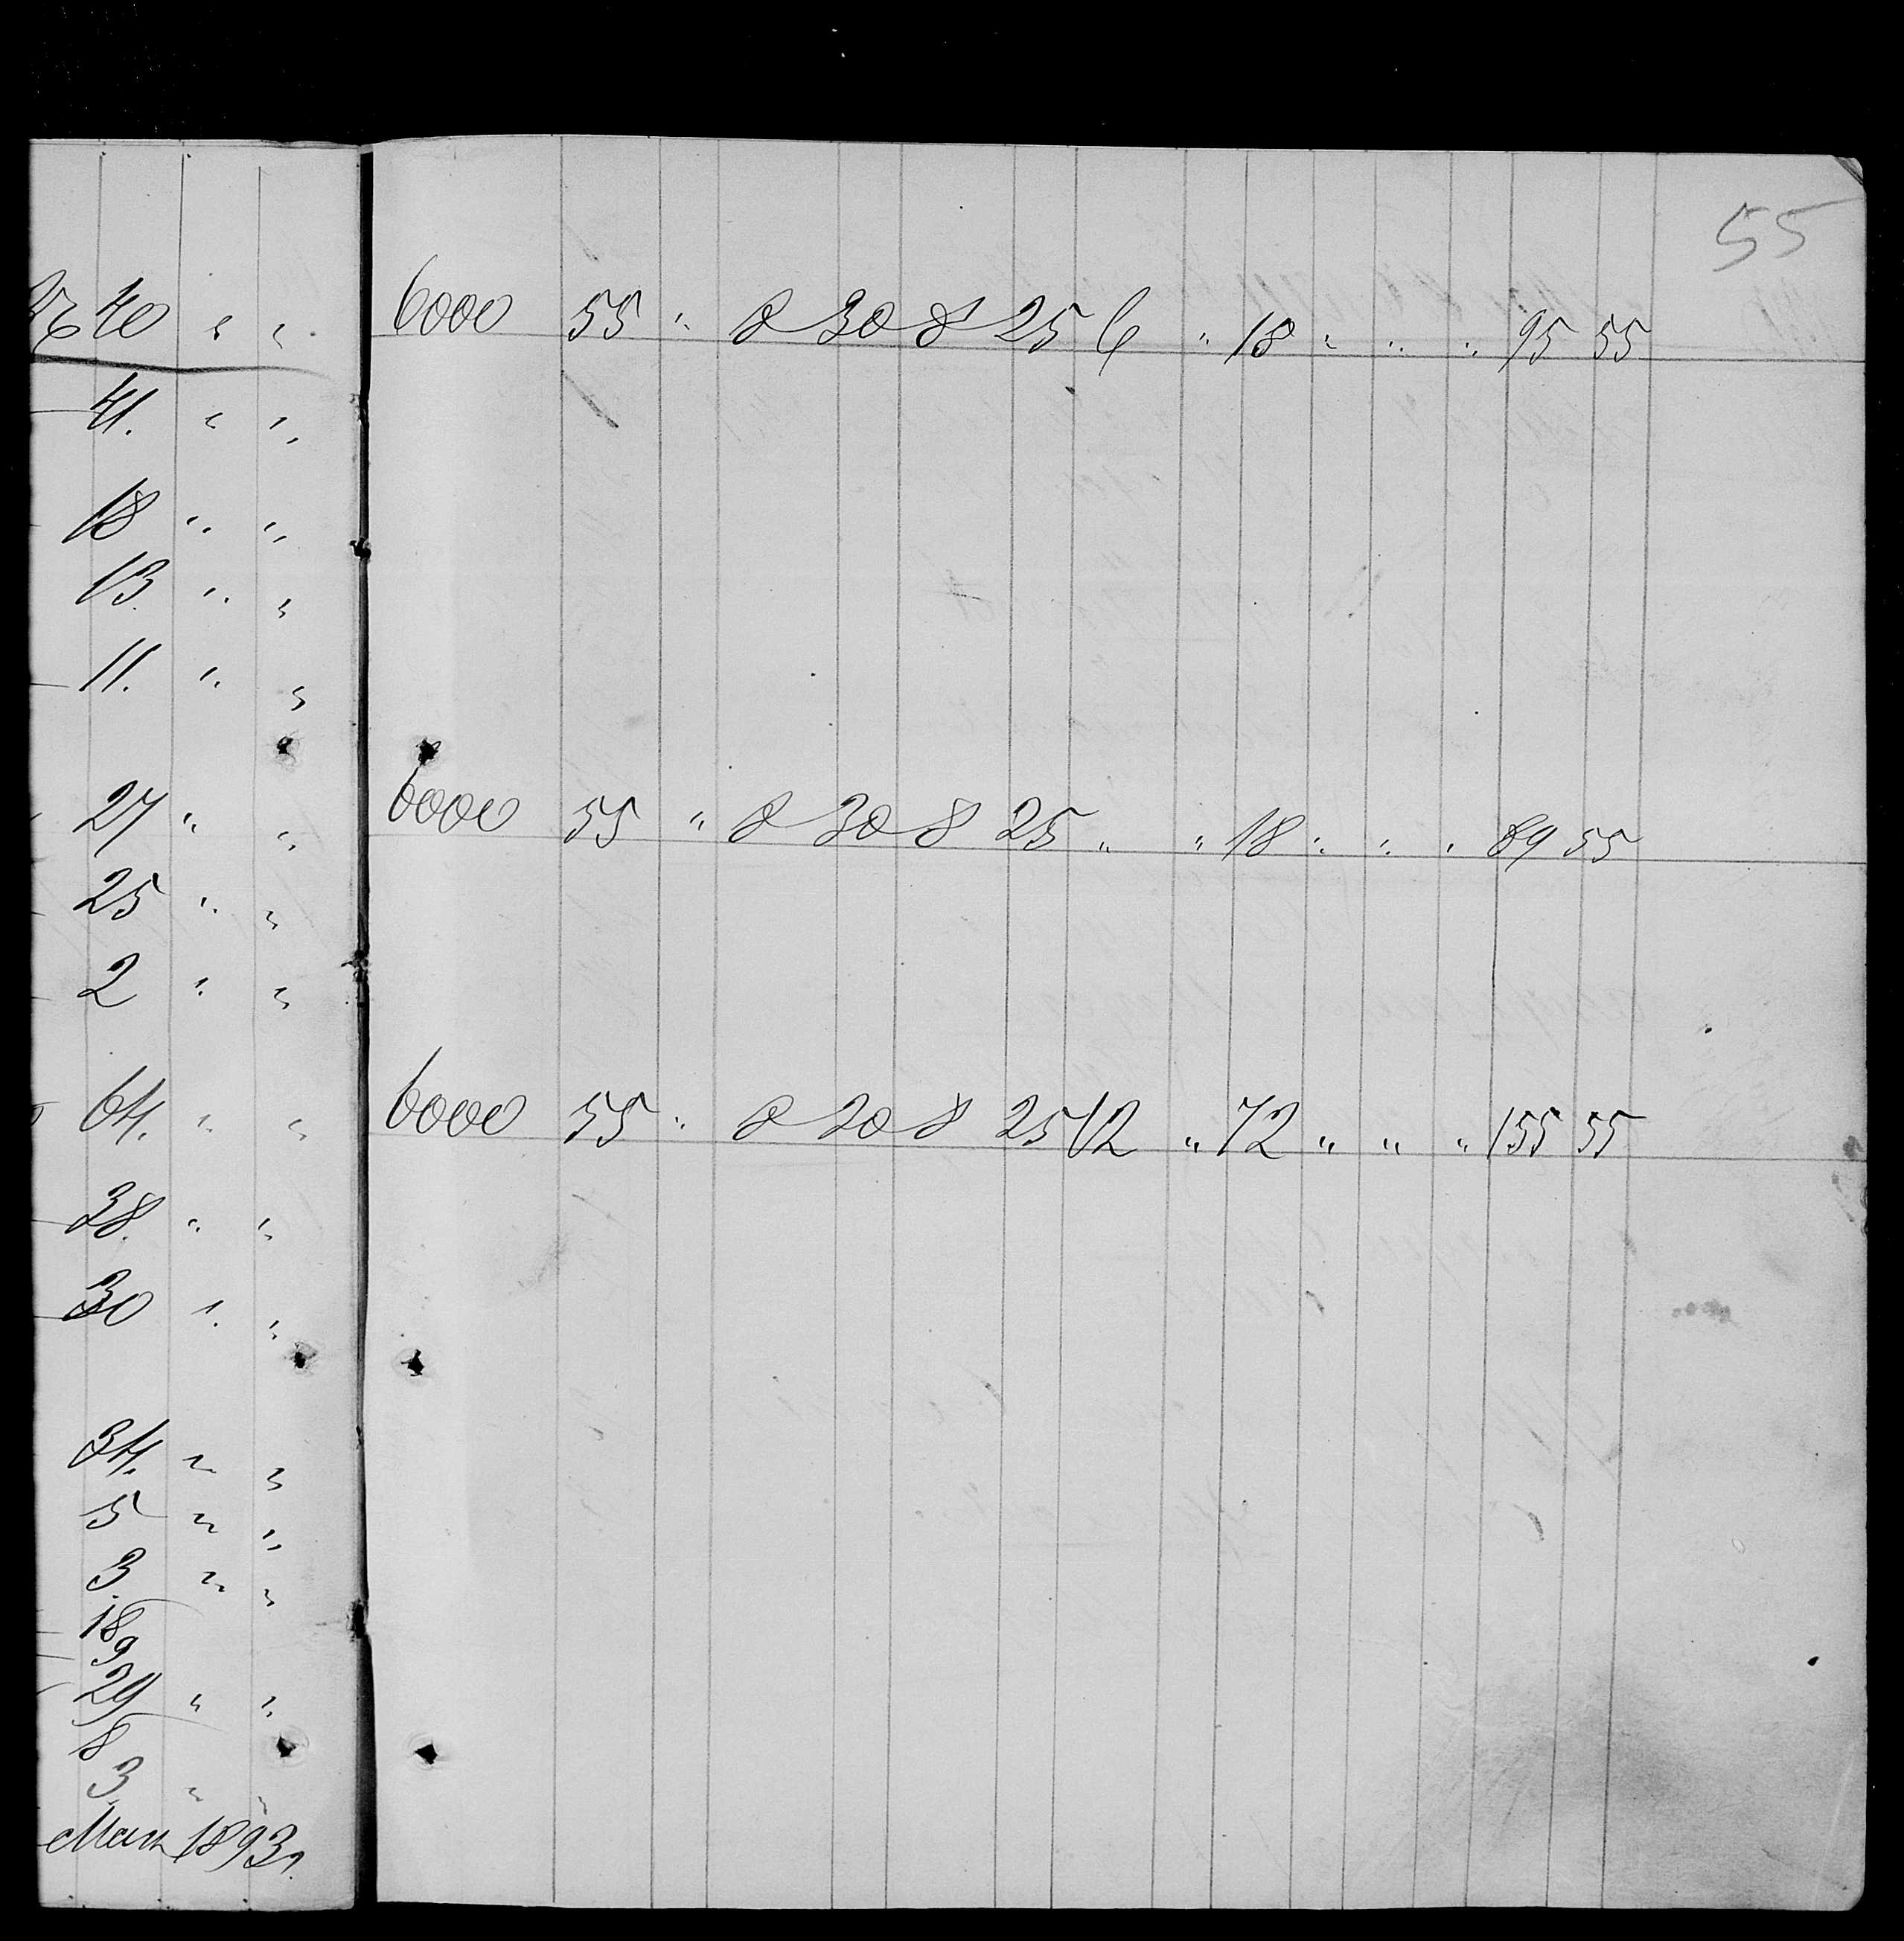 40 " "
41. " "
18 " "
13. " "
11. " "
27 " "
25 " "
2 " "
64. " "
38. " "
30 " "
34. " "
5 " "
3. " "
18
9
29 " "
8
3 " "
1893 г.
55
6000 55 " 8 30 8 25 6 " 18 " " " 95 55
6000 55 " 8 30 8 25 " " 18 " " " 89 55
6000 55 " 8 30 8 25 12 " 72 " " " 155 55